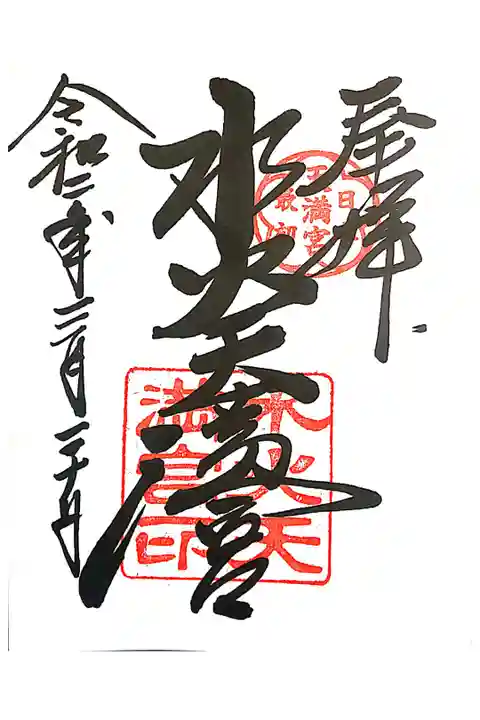 奉拝
日本
天満宮
最初
水火天満宮
水火天
満宮印
令和二年三月二十日